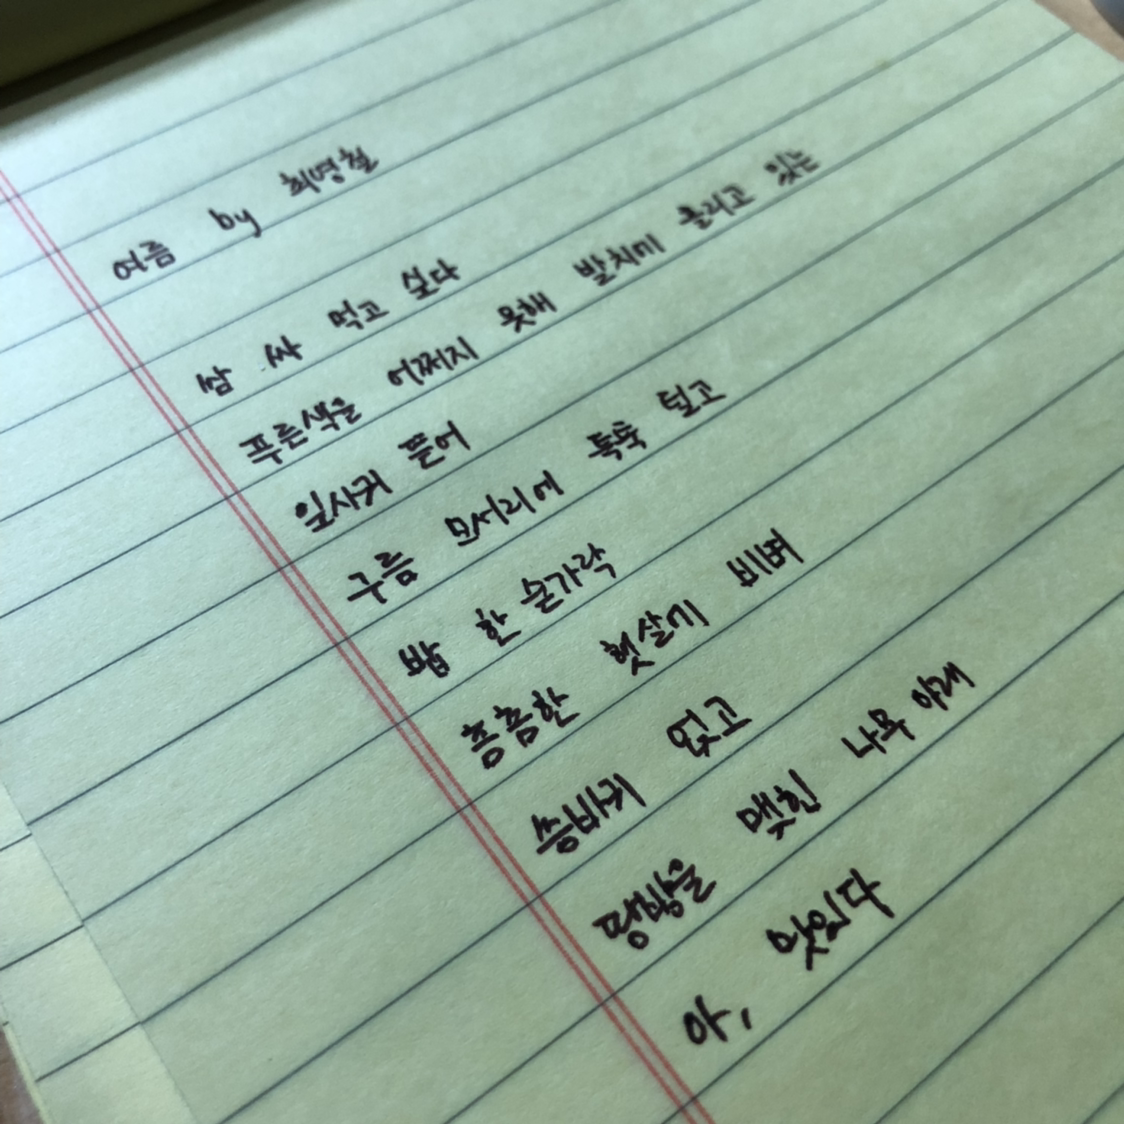 여름 by 최영철
쌈 싸 먹고 싶다
푸른색을 어쩌지 못해 발치에 흘리고 있는
잎사귀 뜯어
구름 모서리에 툭툭 털고
밥 한 숟가락
촘촘한 햇살에 비벼
씀바귀 얹고
땀방울 맺힌 나무 아래
아, 맛있다